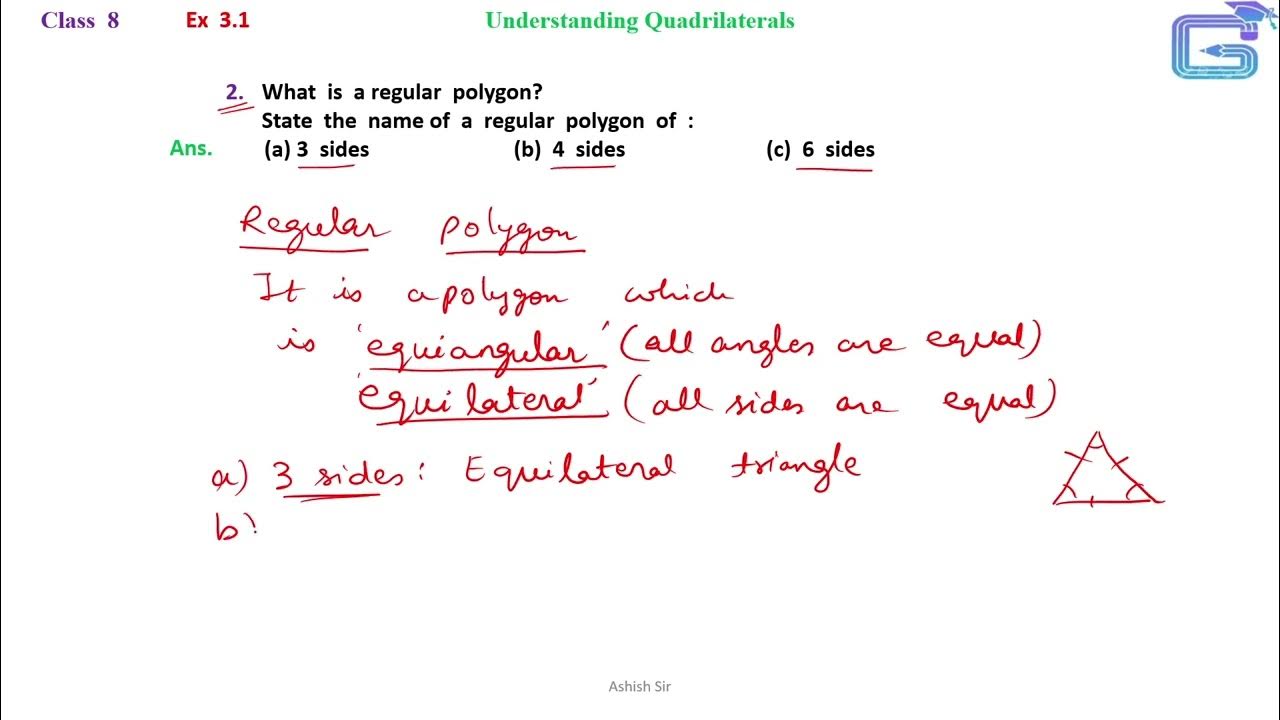 Class 8 Ex 3.1 Understanding Quadrilaterals
2. What is a regular polygon?
State the name of a regular polygon of :
Ans. (a) 3 sides (b) 4 sides (c) 6 sides
Regular polygon
It is a polygon which
is 'equiangular' (all angles are equal)
'equilateral' (all sides are equal)
a) 3 sides: Equilateral triangle
b)
Ashish Sir